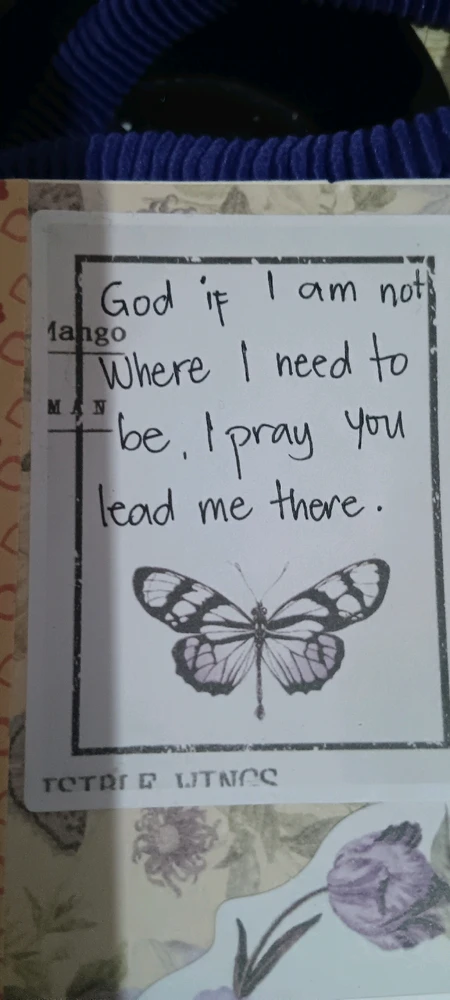 God if I am not
Mango
Where I need to
MAN
be, I pray you
lead me there.